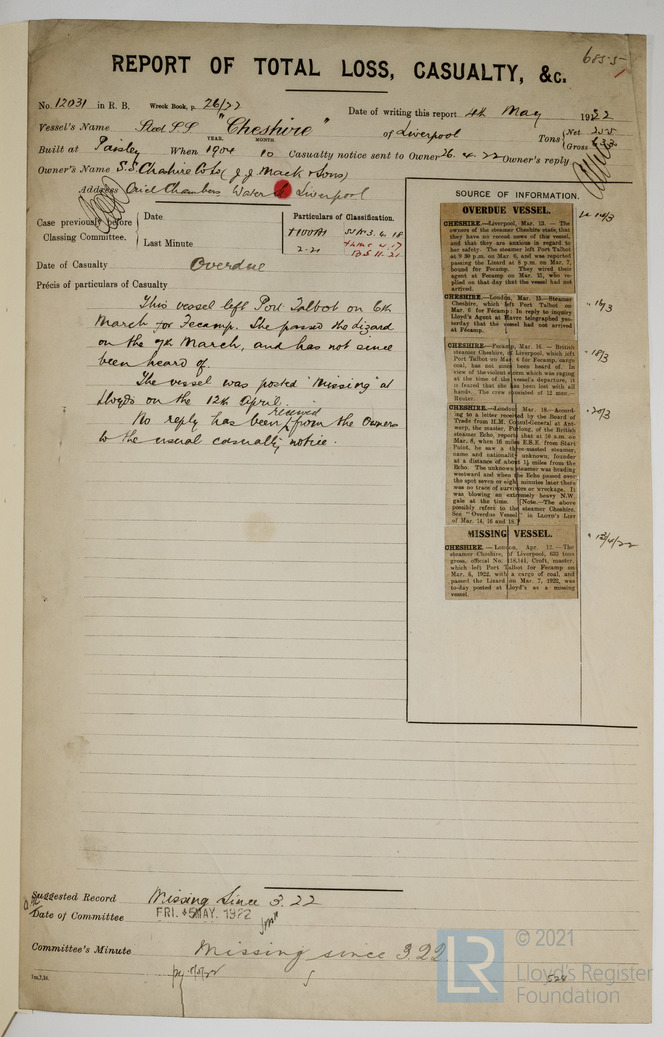 6855
REPORT OF TOTAL LOSS, CASUALTY, &c.
No. 12031 in R. B. Wreck Book, p. 26/22
Date of writing this report 4th May 1922
Vessel's Name Steel SS "Cheshire" of Liverpool
Tons { Net 255
Gross 633
YEAR. MONTH.
Built at Paisley When 1904 10 Casualty notice sent to Owner 26.4.22 Owner's reply
Owner's Name S.S. Cheshire Co Ld (J. J. Mack & Sons)
Address Oriel Chambers Water St Liverpool
Case previously before
Classing Committee.
Date
Last Minute
Particulars of Classification.
+100A1
2.21
Date of Casualty Overdue
Précis of particulars of Casualty
This vessel left Port Talbot on 6th
March for Fecamp. She passed the Lizard
on the 7th March, and has not since
been heard of.
The vessel was posted 'Missing' at
Lloyds on the 12th April.
No reply has been received from the Owners
to the usual casualty notice.
SOURCE OF INFORMATION.
OVERDUE VESSEL.
CHESHIRE.—Liverpool, Mar. 13. — The
owners of the steamer Cheshire state that
they have no recent news of this vessel,
and that they are anxious in regard to
her safety. The steamer left Port Talbot
at 9 30 p.m. on Mar. 6, and was reported
passing the Lizard at 8 p.m. on Mar. 7,
bound for Fecamp. They wired their
agent at Fecamp on Mar. 11, who re-
plied on that day that the vessel had not
arrived.
14/3
CHESHIRE.—London, Mar. 15.—Steamer
Cheshire, which left Port Talbot on
Mar. 6 for Fécamp: In reply to inquiry
Lloyd's Agent at Havre telegraphed yes-
terday that the vessel had not arrived
at Fécamp.
16/3
CHESHIRE.—Fecamp, Mar. 16. — British
steamer Cheshire, of Liverpool, which left
Port Talbot on Mar. 6 for Fecamp, cargo
coal, has not since been heard of. In
view of the violent storm which was raging
at the time of the vessel's departure, it
is feared that she has been lost with all
hands. The crew consisted of 12 men.—
Reuter.
18/3
CHESHIRE.—London, Mar. 18.—Accord-
ing to a letter received by the Board of
Trade from H.M. Consul-General at Ant-
werp, the master, Furlong, of the British
steamer Echo, reports that at 10 a.m. on
Mar. 8, when 16 miles E.S.E. from Start
Point, he saw a three-masted steamer,
name and nationality unknown, founder
at a distance of about 1½ miles from the
Echo. The unknown steamer was heading
westward and when the Echo passed over
the spot seven or eight minutes later there
was no trace of survivors or wreckage. It
was blowing an extremely heavy N.W.
gale at the time. [Note.—The above
possibly refers to the steamer Cheshire.
See "Overdue Vessel" in LLOYD'S LIST
of Mar. 14, 16 and 18.]
20/3
MISSING VESSEL.
CHESHIRE. — London, Apr. 12. — The
steamer Cheshire, of Liverpool, 633 tons
gross, official No. 118,144, Croft, master,
which left Port Talbot for Fecamp on
Mar. 6, 1922, with a cargo of coal, and
passed the Lizard on Mar. 7, 1922, was
to-day posted at Lloyd's as a missing
vessel.
13/4/22
Suggested Record Missing Since 3.22
Date of Committee FRI. 5 MAY. 1922
Committee's Minute Missing since 3.22
528
LR
© 2021
Lloyd's Register
Foundation